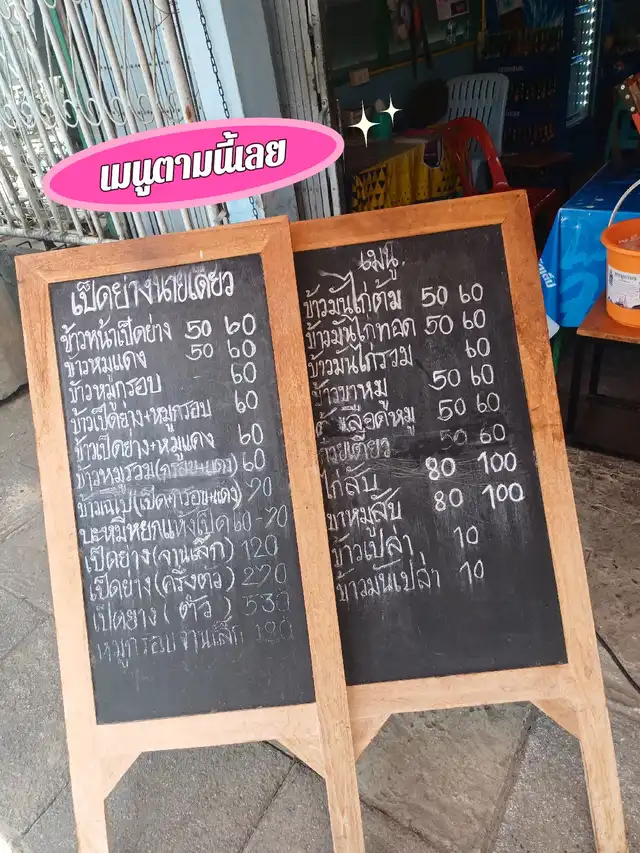 เมนูตามนี้เลย
เป็ดย่างนายเดียว
ข้าวหน้าเป็ดย่าง 50 60
ข้าวหมูแดง 50 60
ข้าวหมูกรอบ 60
ข้าวเป็ดย่าง+หมูกรอบ 60
ข้าวเป็ดย่าง+หมูแดง 60
ข้าวหมูรวม(กรอบ+แดง) 60
ข้าวเฉโป(เป็ด+กรอบ+แดง) 70
บะหมี่หยกแห้งเป็ด 60-70
เป็ดย่าง(จานเล็ก) 120
เป็ดย่าง(ครึ่งตัว) 270
เป็ดย่าง(ตัว) 530
หมูกรอบจานเล็ก 120
เมนู
ข้าวมันไก่ต้ม 50 60
ข้าวมันไก่ทอด 50 60
ข้าวมันไก่รวม 60
ข้าวขาหมู 50 60
เลือดหมู 50 60
ก๋วยเตี๋ยว 50 60
ไก่สับ 80 100
ขาหมูสับ 80 100
ข้าวเปล่า 10
ข้าวมันเปล่า 10